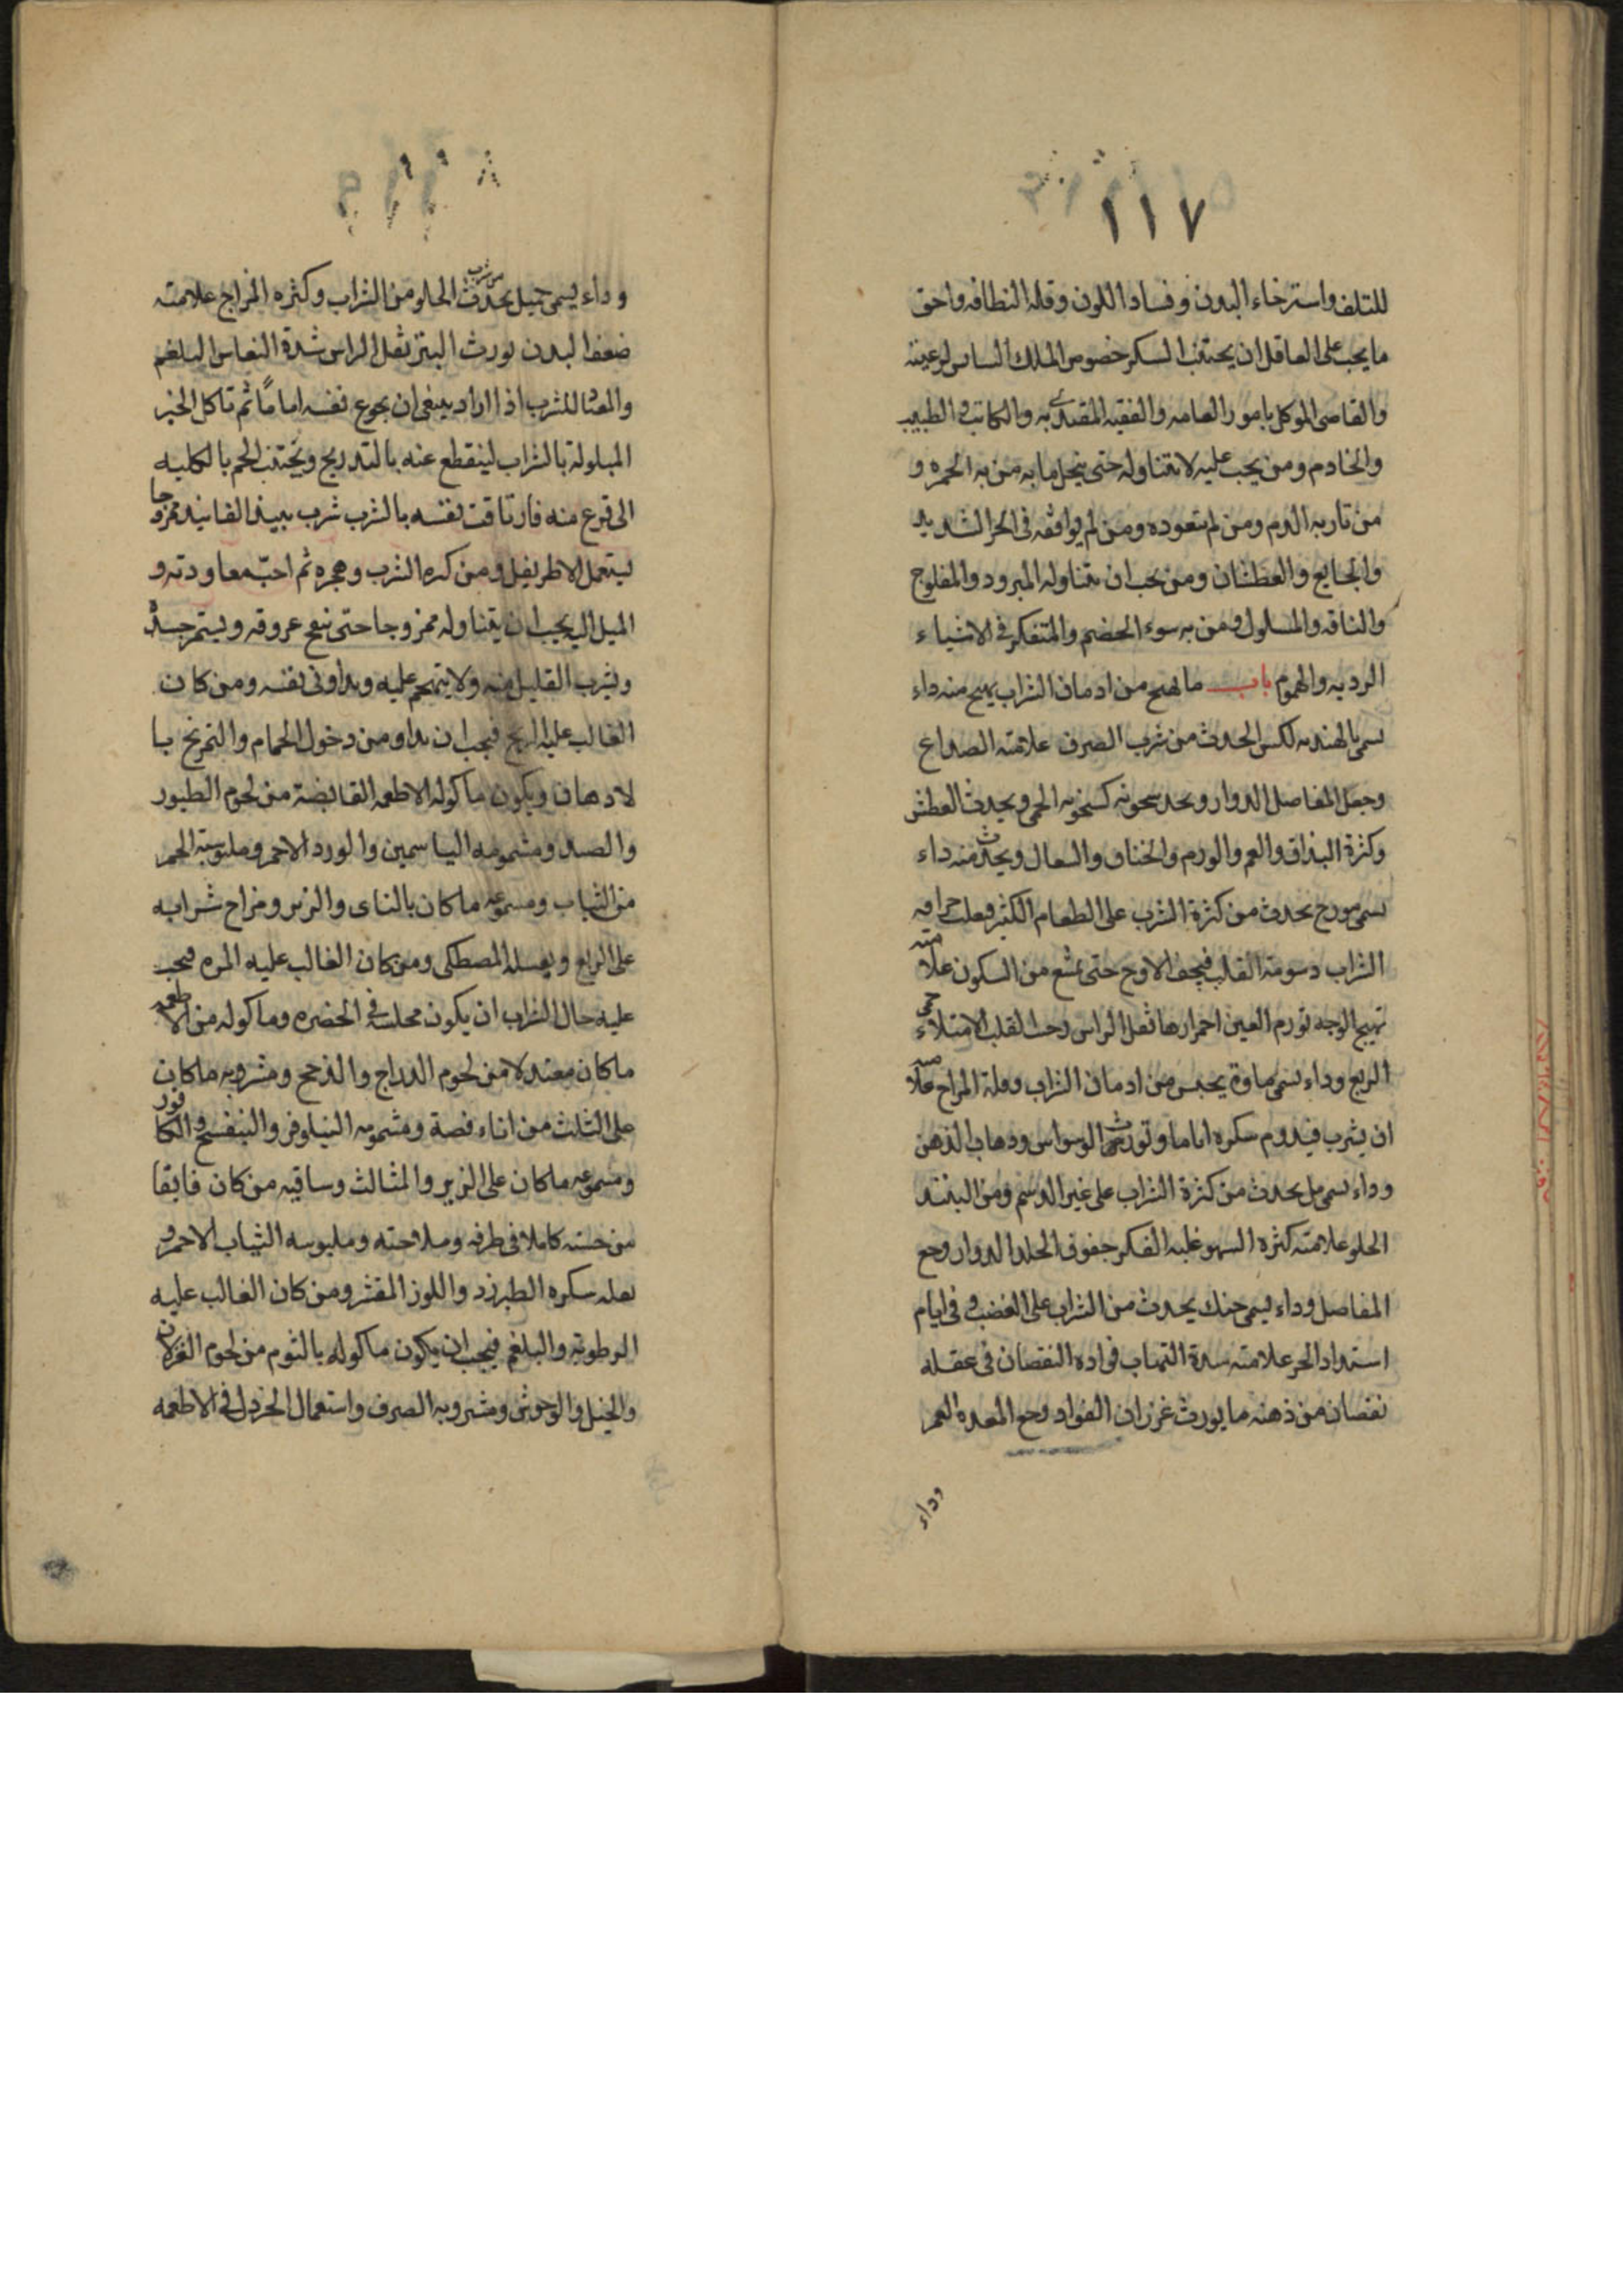 ١١٧
للتلف واسترخاء البدن وفساد اللون وقله النظافه واحق
ما يجب على العاقل ان يجتنب السكر خصوص الملك السائس لرعيته
والقاضى الموكل بامور العامه والفقيه المقتدى به والكاتب والطبيب
والخادم ومن يجب عليه لا يتناوله حتى ينحل ما به من به الحمره و
من ثار به الدم ومن لم يتعوده ومن لم يوافقه فى الحر الشديد
والجايع والعطشان ومن يجب ان يتناوله المبرود والمفلوج
والناقه والمسلول ومن به سوء الهضم والمتفكر فى الاشياء
الرديه والهموم باب ما يهيج من ادمان الشراب يهيج منه داء
يسمى بالهنديه لكس الحدث من شرب الصرف علامته الصداع
وجعل المفاصل الدوار ويجد سخونه كسخونه الحمى ويحدث العطش
وكثرة البذاق والغم والورم والخناق والسعال ويحدث منه داء
يسمى مورج يحدث من كثرة الشرب على الطعام الكثير
الشراب دسومة القلب حتى من السكون علامته
تهيج الوجه تورم العين احمرارها ثقل الراس القلب الامتلاء حمى
الربع وداء يسمى من ادمان الشراب وقلة المزاج علامته
ان يشرب فيدوم سكره اياما وتورث الوسواس وذهاب الذهن
وداء يسمى مل يحدث من كثرة الشراب على غير الدسم ومن
الحلو علامته كثره السهو غلبه الفكر جفوف الجلد الدوار وجع
المفاصل وداء يسمى جنك يحدث من الشراب على الغضب وفى ايام
اشتداد الحر علامته شدة التهاب فواده النقصان فى عقله
نقصان من ذهنه ما يورث غرزان الفواد وجع المعده الغم
وداء
وداء يسمى جيل يحدث من شرب الحلو من الشراب وكثره المزاج علامته
ضعف البدن يورث البثر ثقل الراس شدة النعاس البلغم
والمعتاد للشرب اذا اراد ينبغى ان يجوع نفسه اياماً ثم تاكل الخبز
المبلولة بالشراب لينقطع عنه بالتدريج ويجتنب اللحم بالكليه
الى منه فان تاقت نفسه بالشرب شرب الفانيد ممزوجا
يستعمل الاطريفل ومن كره الشرب وهجره ثم احبّ معاودته و
الميل اليه يجب ان يتناوله ممزوجا حتى عروقه ويستمر
ويشرب القليل منه ولا يتهجم عليه ويداوى نفسه ومن كان
الغالب عليه الريح فيجب ان يداوم من دخول الحمام والتمريخ با
لادهان ويكون ماكوله الاطعمه القابضة من لحوم الطيور
والصيد ومشمومه الياسمين والورد الاحمر وملبوسه الحمر
من الثياب ومسموعه ما كان بالناى والزير ومزاج شرابه
على الربع ونقله المصطكى ومن كان الغالب عليه المره فيجب
عليه حال الشراب ان يكون مجلسه فى الخضره وماكوله من الاطعمه
ما كان معتدلا من لحوم الدراج والتدرج ومشروبه ما كان
على الثلث من اناء فضة ومشمومه النيلوفر والبنفسج والكافور
ومسموعه ما كان على الزير والمثالث وساقيه من كان فايقا
من حسنه كاملا فى ظرفه وملاحته وملبوسه الثياب الاحمر و
نقله سكره الطبرزد واللوز المقشر ومن كان الغالب عليه
الرطوبة والبلغم فيجب ان يكون ماكوله بالثوم من لحوم الغزلان
والخيل والوحوش ومشروبه الصرف واستعمال الخردل فى الاطعمه